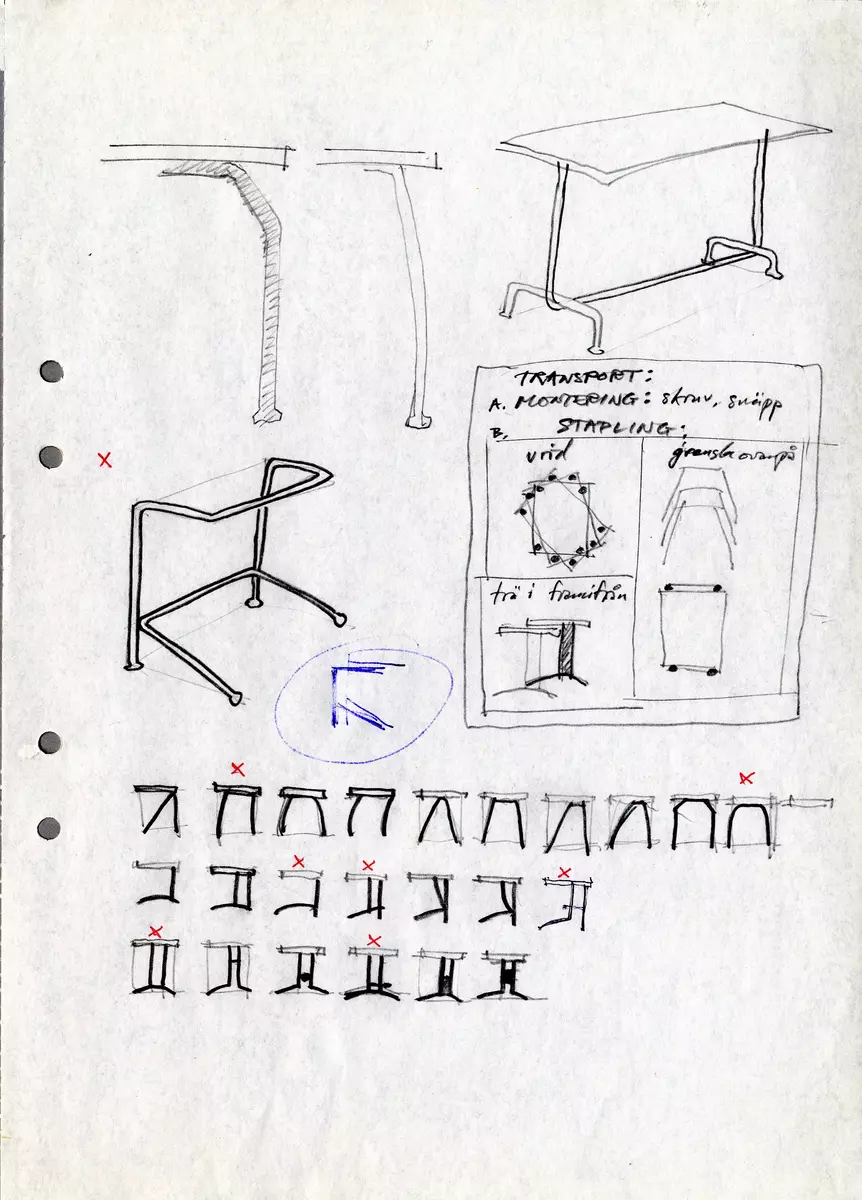 TRANSPORT:
A. MONTERING: skruv, snäpp
B. STAPLING:
vrid
ovanpå
trä i framifrån